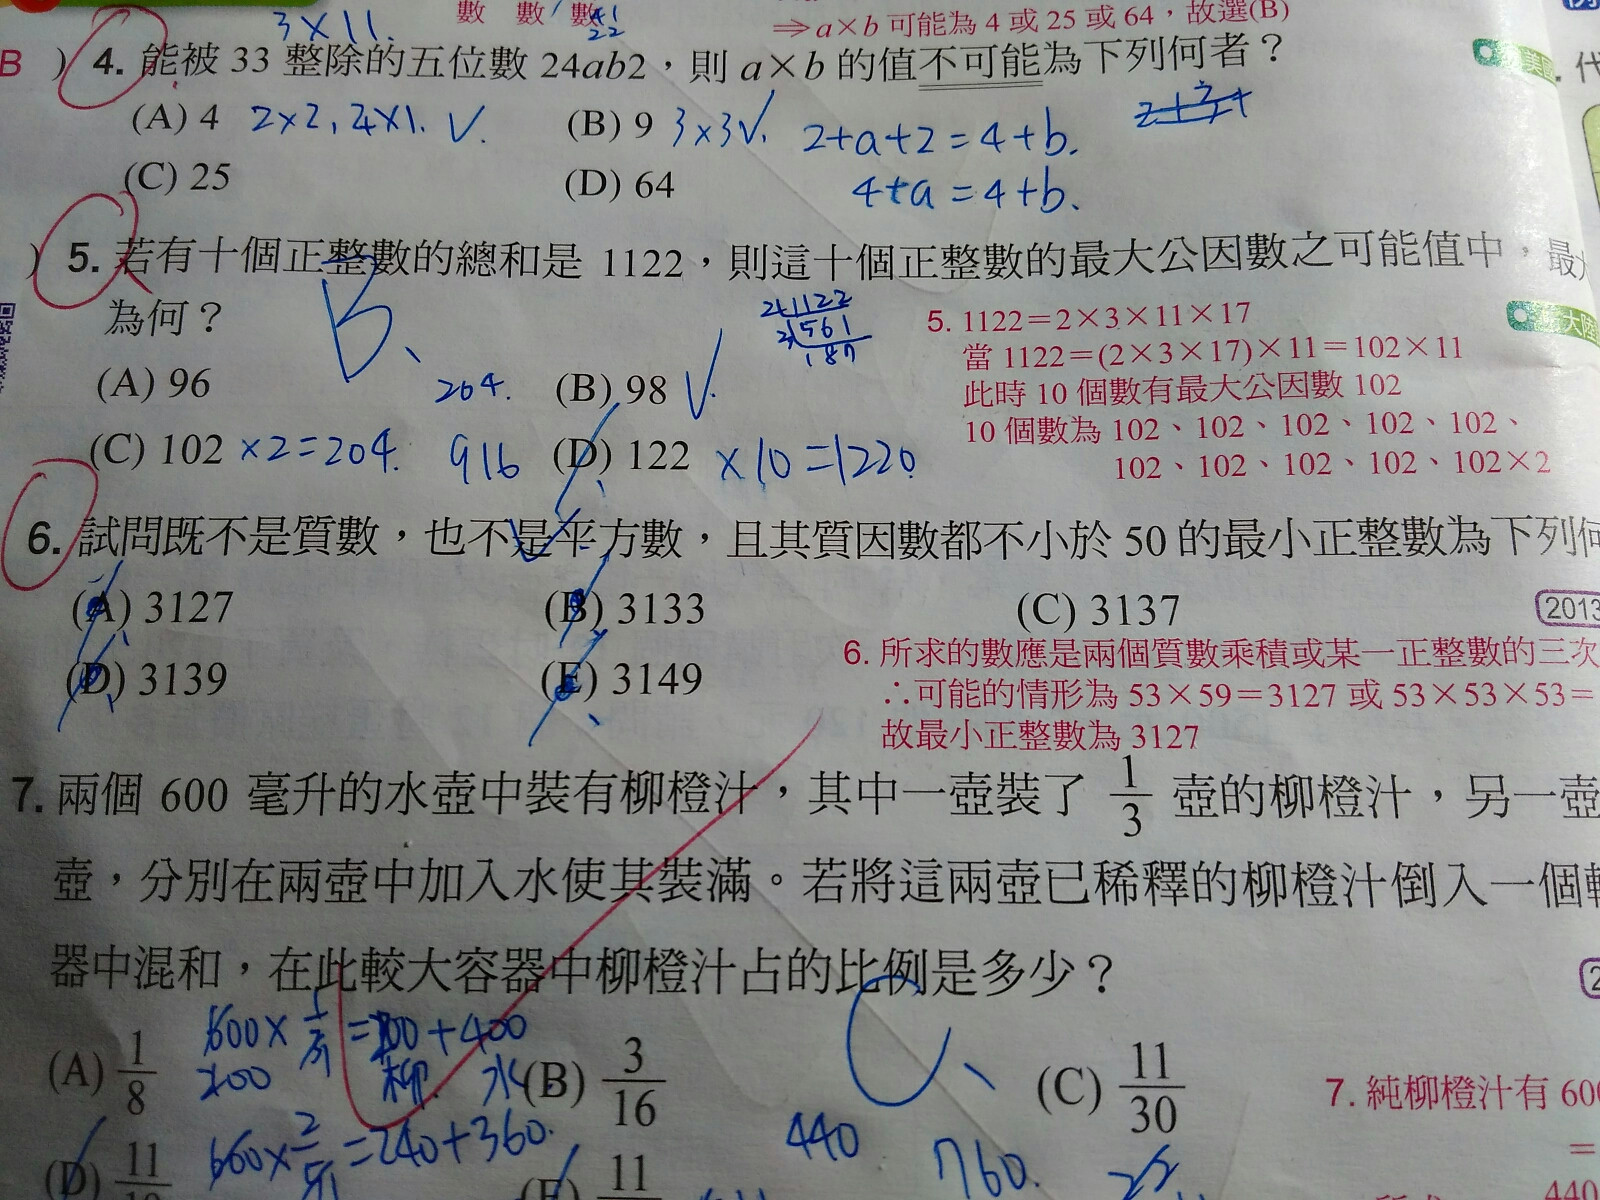 3×11.
數 數 數
⇒a×b 可能為 4 或 25 或 64，故選(B)
B ) 4. 能被 33 整除的五位數 24ab2，則 a×b 的值不可能為下列何者？
(A) 4 2×2, 4×1. (B) 9 3×3 2+a+2=4+b.
(C) 25 (D) 64 4+a=4+b.
) 5. 若有十個正整數的總和是 1122，則這十個正整數的最大公因數之可能值中，最
為何？ B、
2 1122
3 561
187
(A) 96 204. (B) 98
(C) 102 ×2=204. 916 (D) 122 ×10=1220.
5. 1122＝2×3×11×17
當 1122＝(2×3×17)×11＝102×11
此時 10 個數有最大公因數 102
10 個數為 102、102、102、102、102、
102、102、102、102、102×2
大陸
6. 試問既不是質數，也不是平方數，且其質因數都不小於 50 的最小正整數為下列何
(A) 3127 (B) 3133 (C) 3137
2013
(D) 3139 (E) 3149
6. 所求的數應是兩個質數乘積或某一正整數的三次
∴可能的情形為 53×59＝3127 或 53×53×53＝
故最小正整數為 3127
7. 兩個 600 毫升的水壺中裝有柳橙汁，其中一壺裝了 1/3 壺的柳橙汁，另一壺
壺，分別在兩壺中加入水使其裝滿。若將這兩壺已稀釋的柳橙汁倒入一個
器中混和，在此較大容器中柳橙汁占的比例是多少？
600×1/3=200+400
200 柳 水
C、
(A) 1/8 (B) 3/16 (C) 11/30
7. 純柳橙汁有 600
＝
600×2/5=240+360.
440 760.
(D) 11 (E) 11
440